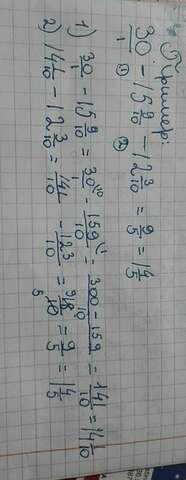 Пример:
30/1 - 15 9/10 - 12 3/10 = 9/5 = 1 4/5
① ②
1) 30/1 - 15 9/10 = 30^10/1 - 159^1/10 = 300 - 159/10 = 141/10 = 14 1/10
2) 14 1/10 - 12 3/10 = 141/10 - 123/10 = 18^9/10_5 = 9/5 = 1 4/5